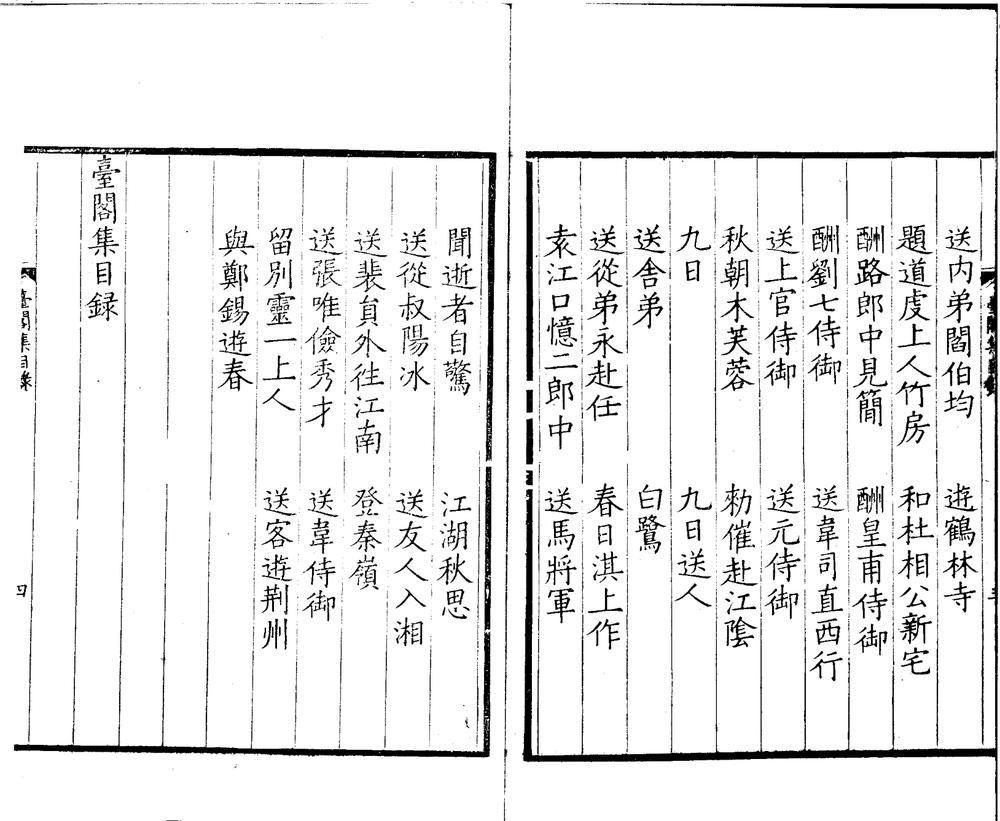 送内弟閻伯均　遊鶴林寺
題道虔上人竹房　和杜相公新宅
酬路郎中見簡　酬皇甫侍御
酬劉七侍御　送韋司直西行
送上官侍御　送元侍御
秋朝木芙蓉　勑催赴江隂
九日　九日送人
送舍弟　白鷺
送從弟永赴任　春日淇上作
袁江口憶二郎中　送馬將軍
聞逝者自驚　江湖秋思
送從叔陽冰　送友人入湘
送裴貟外徃江南　登秦嶺
送張唯儉秀才　送韋侍御
留別靈一上人　送客遊荆州
與鄭錫遊春
臺閣集目録
臺閣集目錄
四